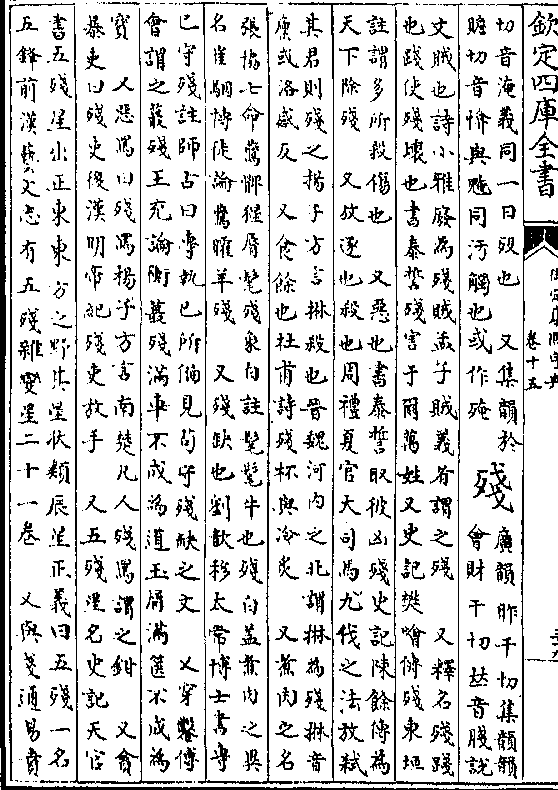 欽定四庫全書
卷十五
切音淹義同一曰殁也　又集韻於
贍切音愴與𣨛同汚觸也或作殗
殘
廣韻昨干切集韻韻
會財干切𠀤音戔說
文賊也詩小雅廢為殘賊孟子賊義者謂之殘　又釋名殘踐
也踐使殘壞也書泰誓殘害于爾萬姓又史記樊噲傳殘東垣
註謂多所殺傷也　又惡也書泰誓取彼凶殘史記陳餘傳為
天下除殘　又放逐也殺也周禮夏官大司馬九伐之法放弑
其君則殘之揚子方言㨆殺也晉魏河内之北謂㨆為殘㨆音
廩或洛感反　又食餘也杜甫詩殘杯與冷炙　又煮肉之名
張協七命鷰髀猩脣髦殘象白註髦髦牛也殘白蓋煮肉之異
名崔駰博徒論鷰臛羊殘　又殘缺也劉歆移太常博士書專
己守殘註師古曰專執己所偏見苟守殘缺之文　又穿鑿傳
會謂之叢殘王充論衡叢殘滿車不成為道玉屑滿篋不成為
寶　又惡罵曰殘罵楊子方言南楚凡人殘罵謂之鉗　又貪
暴吏曰殘吏後漢明帝紀殘吏放手　又五殘星名史記天官
書五殘星出正東東方之野其星狀類辰星正義曰五殘一名
五鋒前漢藝文志有五殘雜變星二十一卷　又與戔通易賁